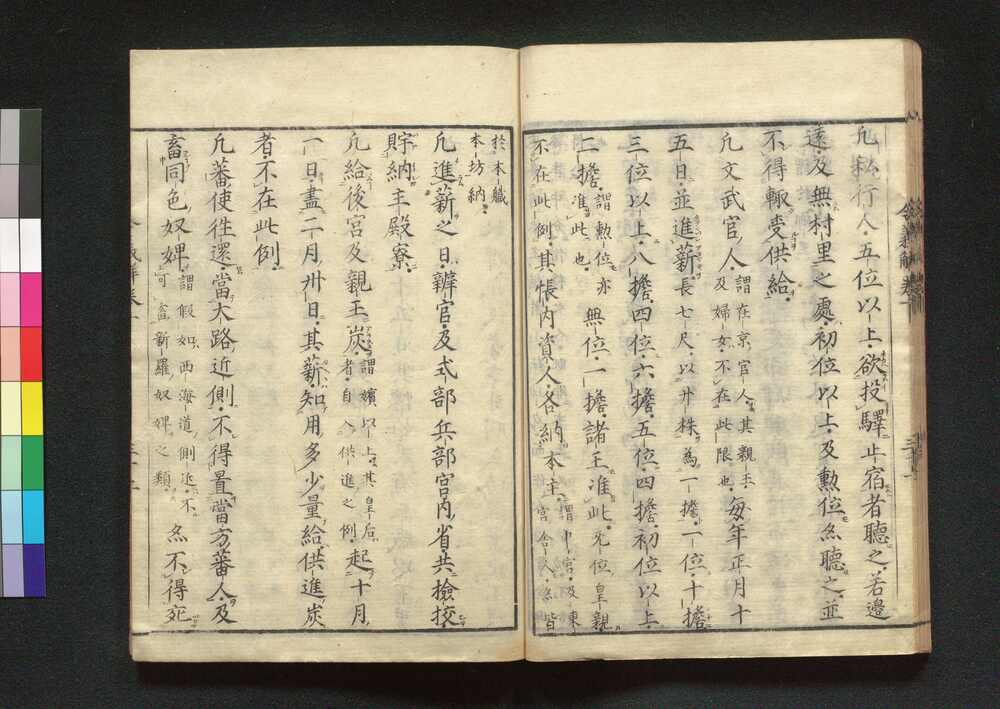 凡私行人五位以上欲投驛止宿者聽之若邊
遠及無村里之處初位以上及勲位亦聽之並
不得輙受供給
凡文武官人謂在京官人其親王及婦女不在此限也毎年正月十
五日並進薪長七尺以廿株為一擔一位十擔
三位以上八擔四位六擔五位四擔初位以上
二擔謂勲位亦准此也無位一擔諸王准此无位皇親
不在此例其帳内資人各納本主謂中宮及東宮舎人亦皆
於本軄
本坊納
凡進薪之日辨官及式部兵部宮内省共撿挍
貯納主殿寮
凡給後宮及親王炭謂嬪以上其皇后者自入供進之例起十月
一日盡二月卅日其薪知用多少量給供進炭
者不在此例
凡蕃使往還當大路近側不得置當方蕃人及
畜同色奴婢謂假如西海道側近不可畜新羅奴婢之類亦不得充